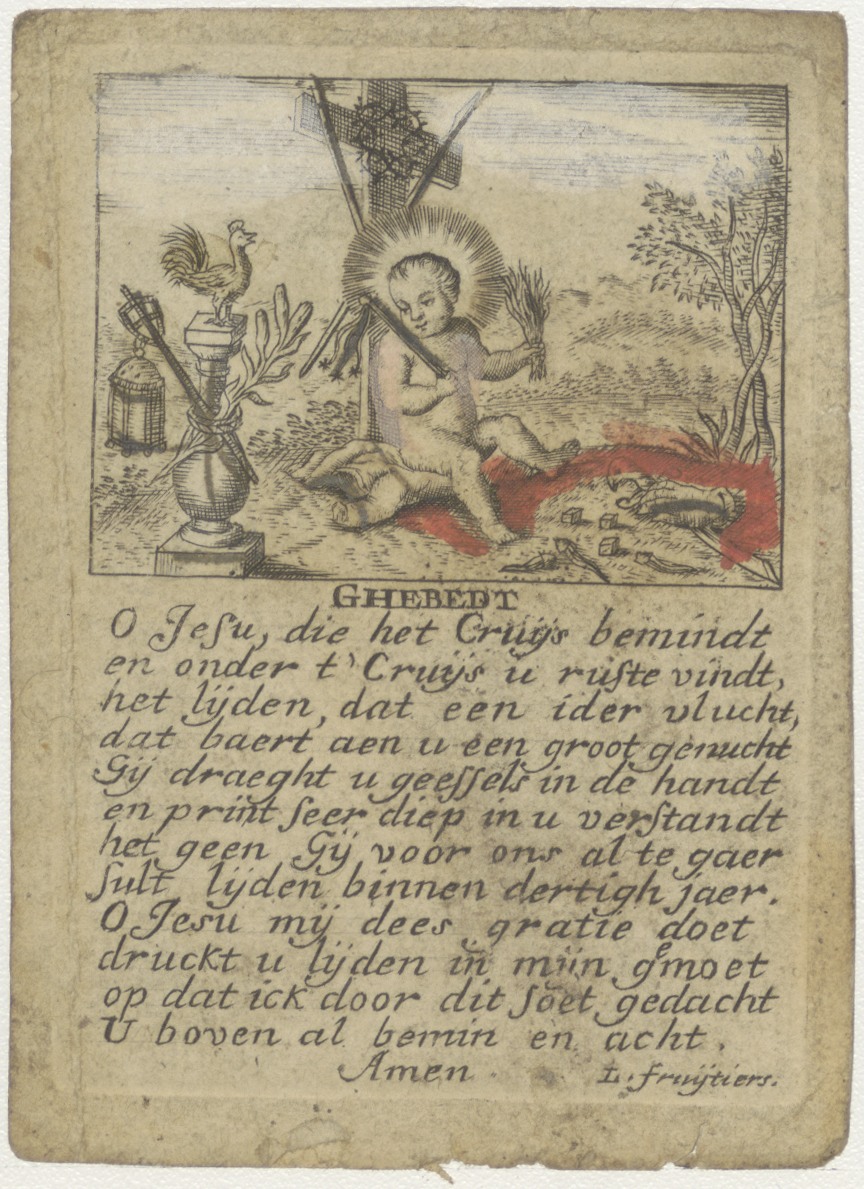 GHEBEDT
O Jesu, die het Cruijs bemindt
en onder t' Cruijs u ruste vindt,
het lijden, dat een ider vlucht,
dat baert aen u een groot genucht
Gij draeght u geessels in de handt
en print seer diep in u verstandt
het geen Gij voor ons al te gaer
sult lijden binnen dertigh jaer.
O Jesu mij dees gratie doet
druckt u lijden in mijn g'moet
op dat ick door dit soet gedacht
U boven al bemin en acht.
Amen
L. fruijtiers.